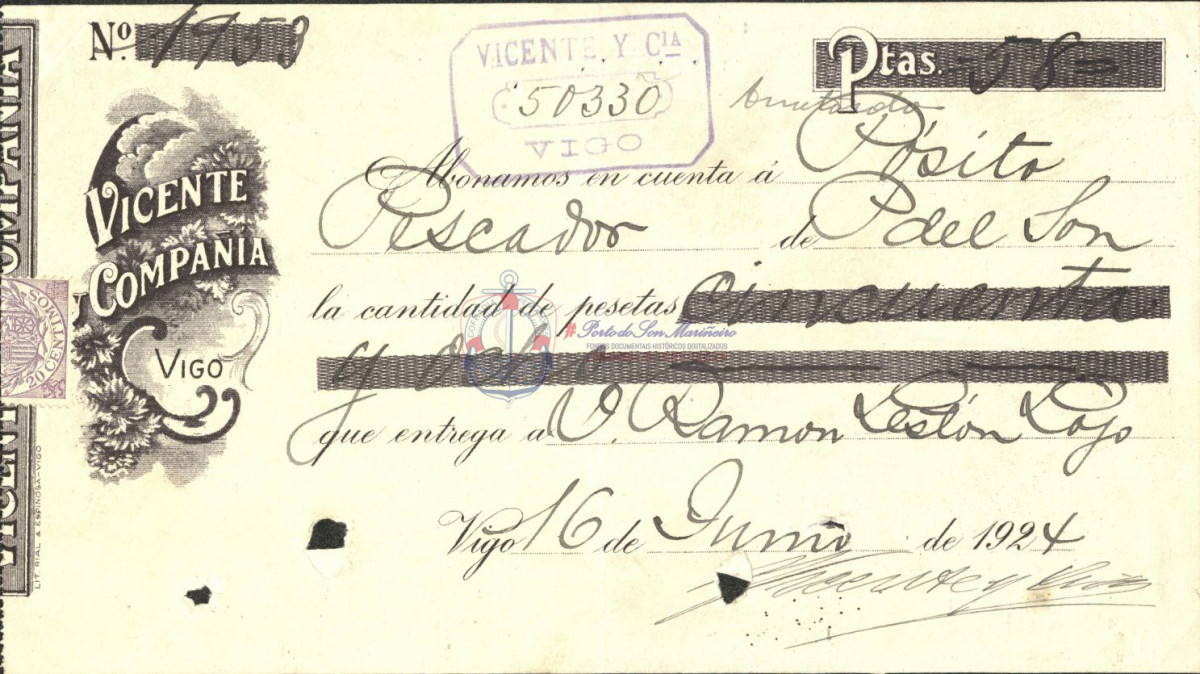 Nº 1953
VICENTE Y CIA
50330
VIGO
Ptas. 58=
Abonamos en cuenta á Pósito
Pescador de P del Son
la cantidad de pesetas cincuenta
y ocho
que entrega a D. Ramon Lestón Lojo
Vigo 16 de Junio de 1924
Vicente y Cia
VICENTE
Y COMPAÑIA
VIGO
TIMBRE
20 CENT
LIT. RIAL & ESPINOSA-VIGO
#Porto do Son Mariñeiro
FONDOS DOCUMENTAIS HISTÓRICOS DIXITALIZADOS